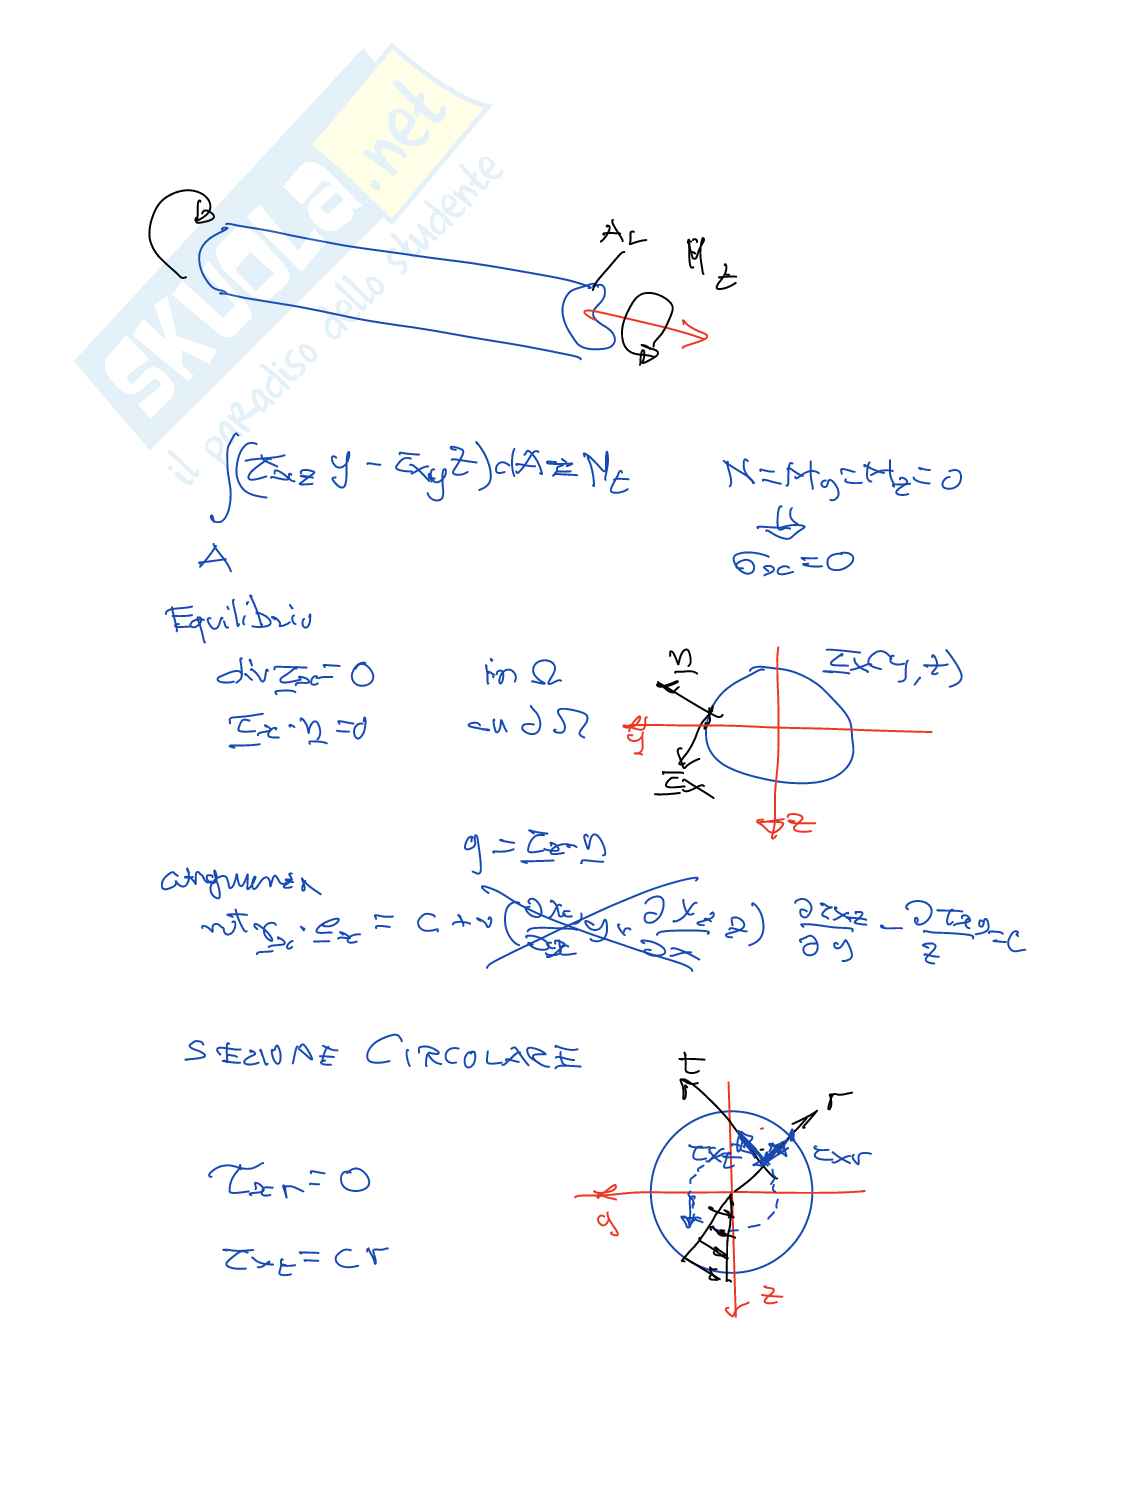 SKUOLA.net
il paradiso dello studente
A_L M_t
∫_A (τ_xz y − τ_xy z) dA = M_t N = M_y = M_z = 0
⇓
σ_x = 0
Equilibrio
div τ_x = 0 in Ω τ_x(y, z)
τ_x · n = 0 su ∂Ω
n
y
τ_x
z
g = τ_x · n
congruenza
rot γ_x · e_x = C + ∂τ_xz/∂y − ∂τ_xy/z = C
SEZIONE CIRCOLARE
t
r
τ_xt τ_xr
τ_xr = 0
y
τ_xt = C r
z